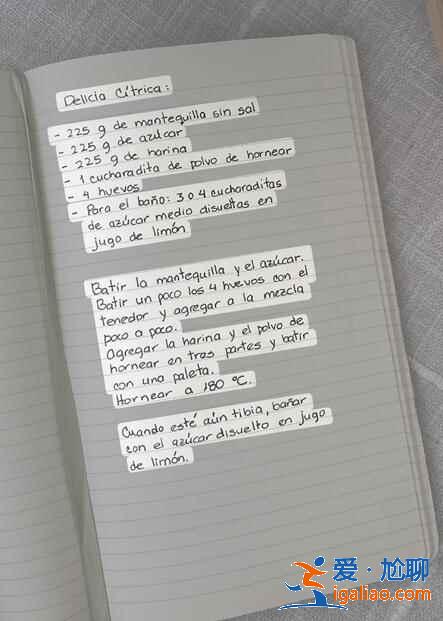 Delicia Cítrica:
- 225 g de mantequilla sin sal
- 225 g de azúcar
- 225 g de harina
- 1 cucharadita de polvo de hornear
- 4 huevos
- Para el baño: 3 o 4 cucharaditas
de azúcar medio disueltas en
jugo de limón
Batir la mantequilla y el azúcar.
Batir un poco los 4 huevos con el
tenedor y agregar a la mezcla
poco a poco.
Agregar la harina y el polvo de
hornear en tras partes y batir
con una paleta.
Hornear a 180 °C.
Cuando esté aún tibia, bañar
con el azúcar disuelto en jugo
de limón.
爱·尬聊
igaliao.com